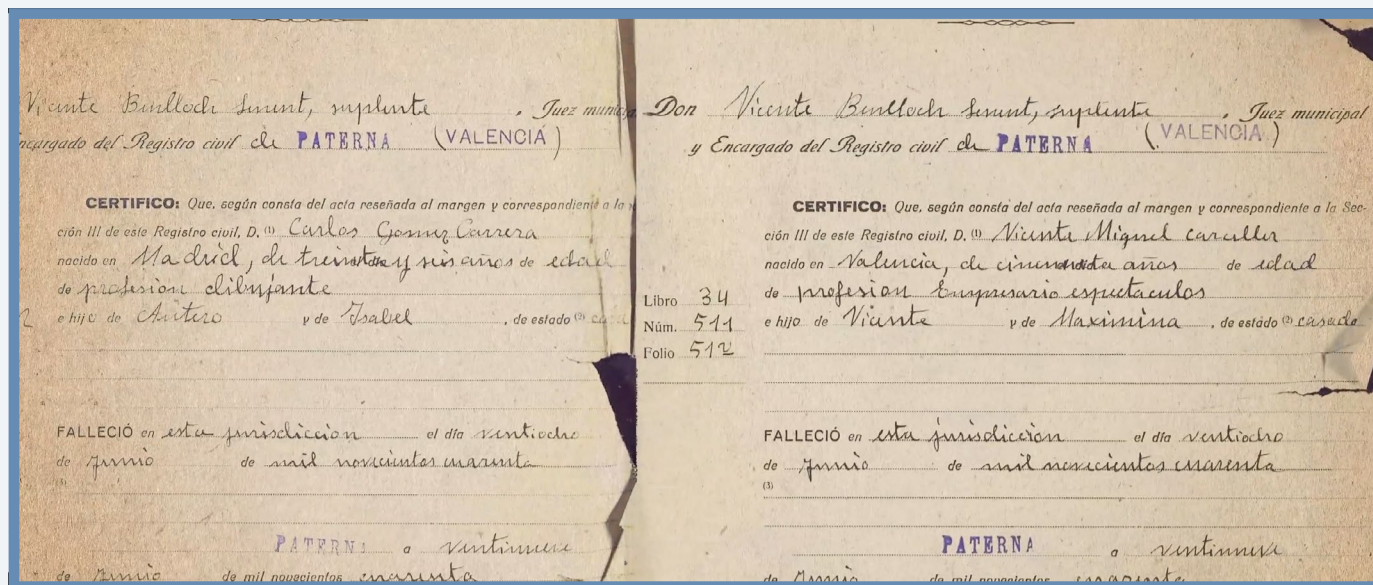 Vicente Benlloch Senent, suplente, Juez munici
ncargado del Registro civil de PATERNA (VALENCIA)
CERTIFICO: Que, según consta del acta reseñada al margen y correspondiente a la
ción III de este Registro civil, D. (1) Carlos Gomez Carrera
nacido en Madrid, de treinta y seis años de edad
de profesion dibujante
e hijo de Antero y de Isabel, de estado (2)
FALLECIÓ en esta jurisdiccion el día ventiocho
de Junio de mil novecientos cuarenta
(3)
PATERNA a ventinueve
de Junio de mil novecientos cuarenta
Don Vicente Benlloch Senent, suplente, Juez municipal
y Encargado del Registro civil de PATERNA (VALENCIA)
CERTIFICO: Que, según consta del acta reseñada al margen y correspondiente a la Sec-
ción III de este Registro civil, D. (1) Vicente Miguel Carceller
nacido en Valencia, de cincuenta años de edad
Libro 34
Núm. 511
Folio 512
de profesion Empresario espectaculos
e hijo de Vicente y de Maximina, de estado (2) casado
FALLECIÓ en esta jurisdiccion el día ventiocho
de Junio de mil novecientos cuarenta
(3)
PATERNA a ventinueve
de Junio de mil novecientos cuarenta